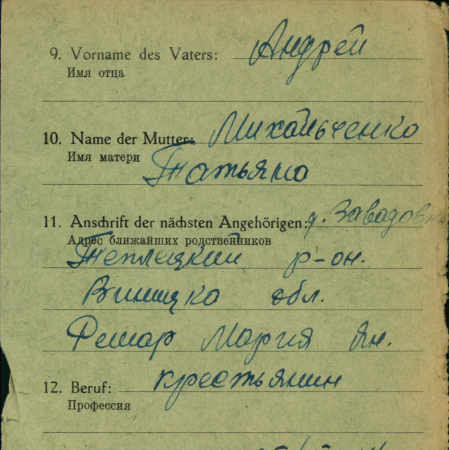 9. Vorname des Vaters: Андрей
Имя отца
10. Name der Mutter: Михальченко
Имя матери
Татьяна
11. Anschrift der nächsten Angehörigen: д.
Адрес ближайших родственников
р-он.
обл.
Мария Ян.
12. Beruf: крестьянин
Профессия